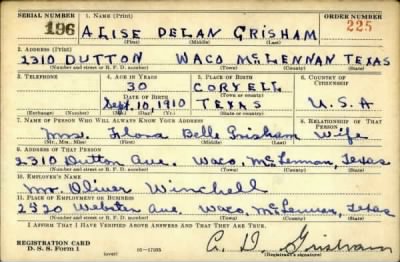 SERIAL NUMBER 1. NAME (Print) ORDER NUMBER
196 ALISE DELAN GRISHAM 225
(First) (Middle) (Last)
2. ADDRESS (Print)
2310 DUTTON WACO McLENNAN TEXAS
(Number and street or R. F. D. number) (Town) (County) (State)
3. TELEPHONE 4. AGE IN YEARS 5. PLACE OF BIRTH 6. COUNTRY OF CITIZENSHIP
30 CORYELL
DATE OF BIRTH (Town or county)
Sept. 10, 1910 TEXAS U.S.A
(Exchange) (Number) (Mo.) (Day) (Yr.) (State or country)
7. NAME OF PERSON WHO WILL ALWAYS KNOW YOUR ADDRESS 8. RELATIONSHIP OF THAT PERSON
Mrs. Flora Belle Grisham Wife
(Mr., Mrs., Miss) (First) (Middle) (Last)
9. ADDRESS OF THAT PERSON
2310 Dutton Ave. Waco, McLennan, Texas
(Number and street or R. F. D. number) (Town) (County) (State)
10. EMPLOYER'S NAME
Mr. Oliver Winchell
11. PLACE OF EMPLOYMENT OR BUSINESS
2520 Webster Ave. Waco, McLennan, Texas
(Number and street or R. F. D. number) (Town) (County) (State)
I AFFIRM THAT I HAVE VERIFIED ABOVE ANSWERS AND THAT THEY ARE TRUE.
REGISTRATION CARD
D. S. S. Form 1 (over) 16—17105 A. D. Grisham